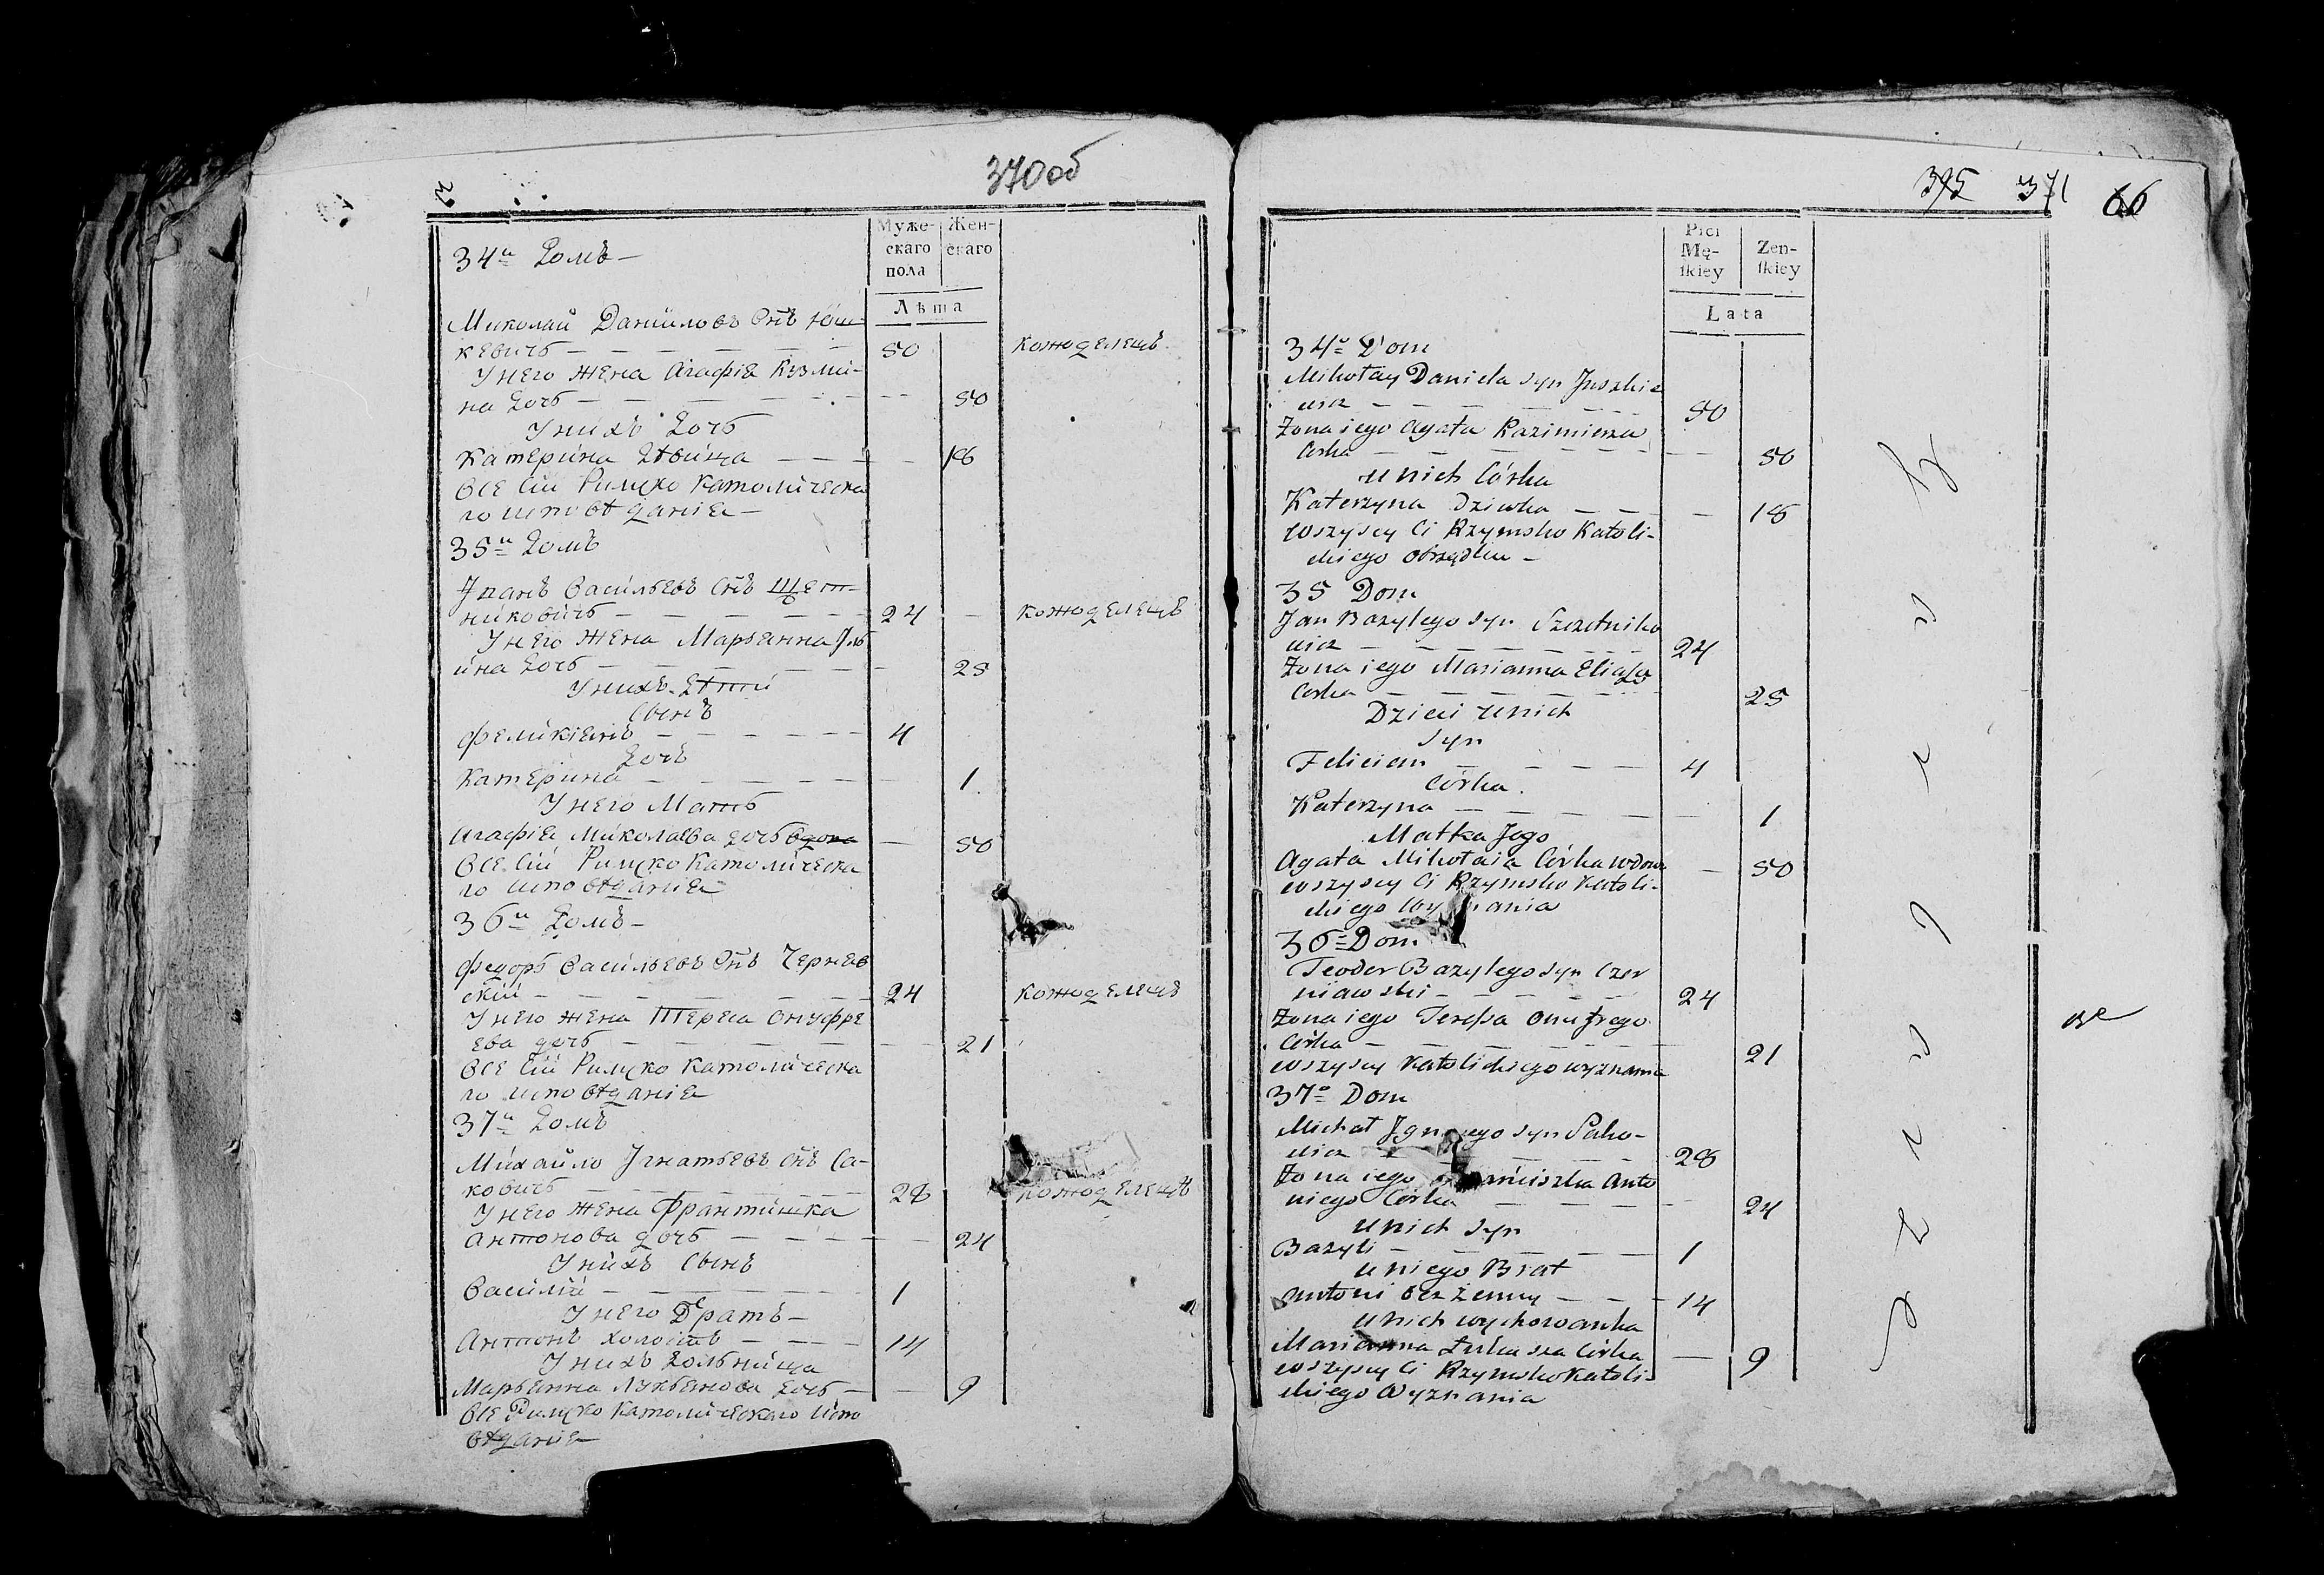 370об
34й Домъ
Муже-
скаго
пола
Жен-
скаго
Лѣта
Миколай Данииловъ Снъ Юш-
кевичь 50 кожоделецъ
У него жена Агафія Кузми-
на дочь 50
У нихъ дочь
Катерина Дѣвица 18
Все сіи Римско Католическа
го исповѣданія
35й Домъ
Иванъ Васильевъ Снъ Щет-
никовичь 24 кожоделецъ
У него жена Марьянна Иль
ина дочь 25
У нихъ дѣти
Сынъ
Феликіанъ 4
Дочь
Катерина 1
У него Мать
Агафія Миколаева дочь вдова 50
Все Сіи Римско Католическа
го исповѣданія
36й Домъ
Федоръ Васильевъ Снъ Черняв
скій 24 кожоделецъ
У него жена Тереса Онуфре
ева дочь 21
Все Сіи Римско Католическа
го исповѣданія
37й Домъ
Михайло Игнатьевъ Снъ Са-
ковичь 28 кожоделецъ
У него жена Франтишка
Антонова дочь 24
У нихъ Сынъ
Василій 1
У него Братъ
Антонъ холостъ 14
У нихъ
Марьянна Лукьянова дочь 9
Все Римско Католическаго Испо
вѣданія
375 371 66
Płci
Mę-
ſkiey
Żen-
ſkiey
Lata
34o Dom
Mikołay Daniela syn Juszkie
wicz 50
Żona iego Agata Kazimierza
Corka 50
u nich Córka
Katerzyna Dziewka 18
wszyscy Ci Rzymsko Katoli-
ckiego obrządku
35 Dom
Jan Bazylego syn Szczetniko
wicz 24
Żona iego Marianna Eliasza
Corka 25
Dzieci u nich
syn
Felicien 4
Córka
Katerzyna 1
Matka Jego
Agata Mikołaia Córka wdowa 50
wszyscy Ci Rzymsko Katoli-
ckiego
36o Dom
Teodor Bazylego syn Czer
niawski 24
Żona iego Teressa Onufrego
Córka 21
wszyscy Katolickiego wyznania
37o Dom
Michał syn Sako-
wicz 28
Żona iego Anto
niego Córka 24
u nich syn
Bazyli 1
u niego Brat
Antoni bezżenny 14
u nich wychowanka
Marianna Łukasza Córka 9
wszyscy Ci Rzymsko Katoli-
ckiego Wyznania